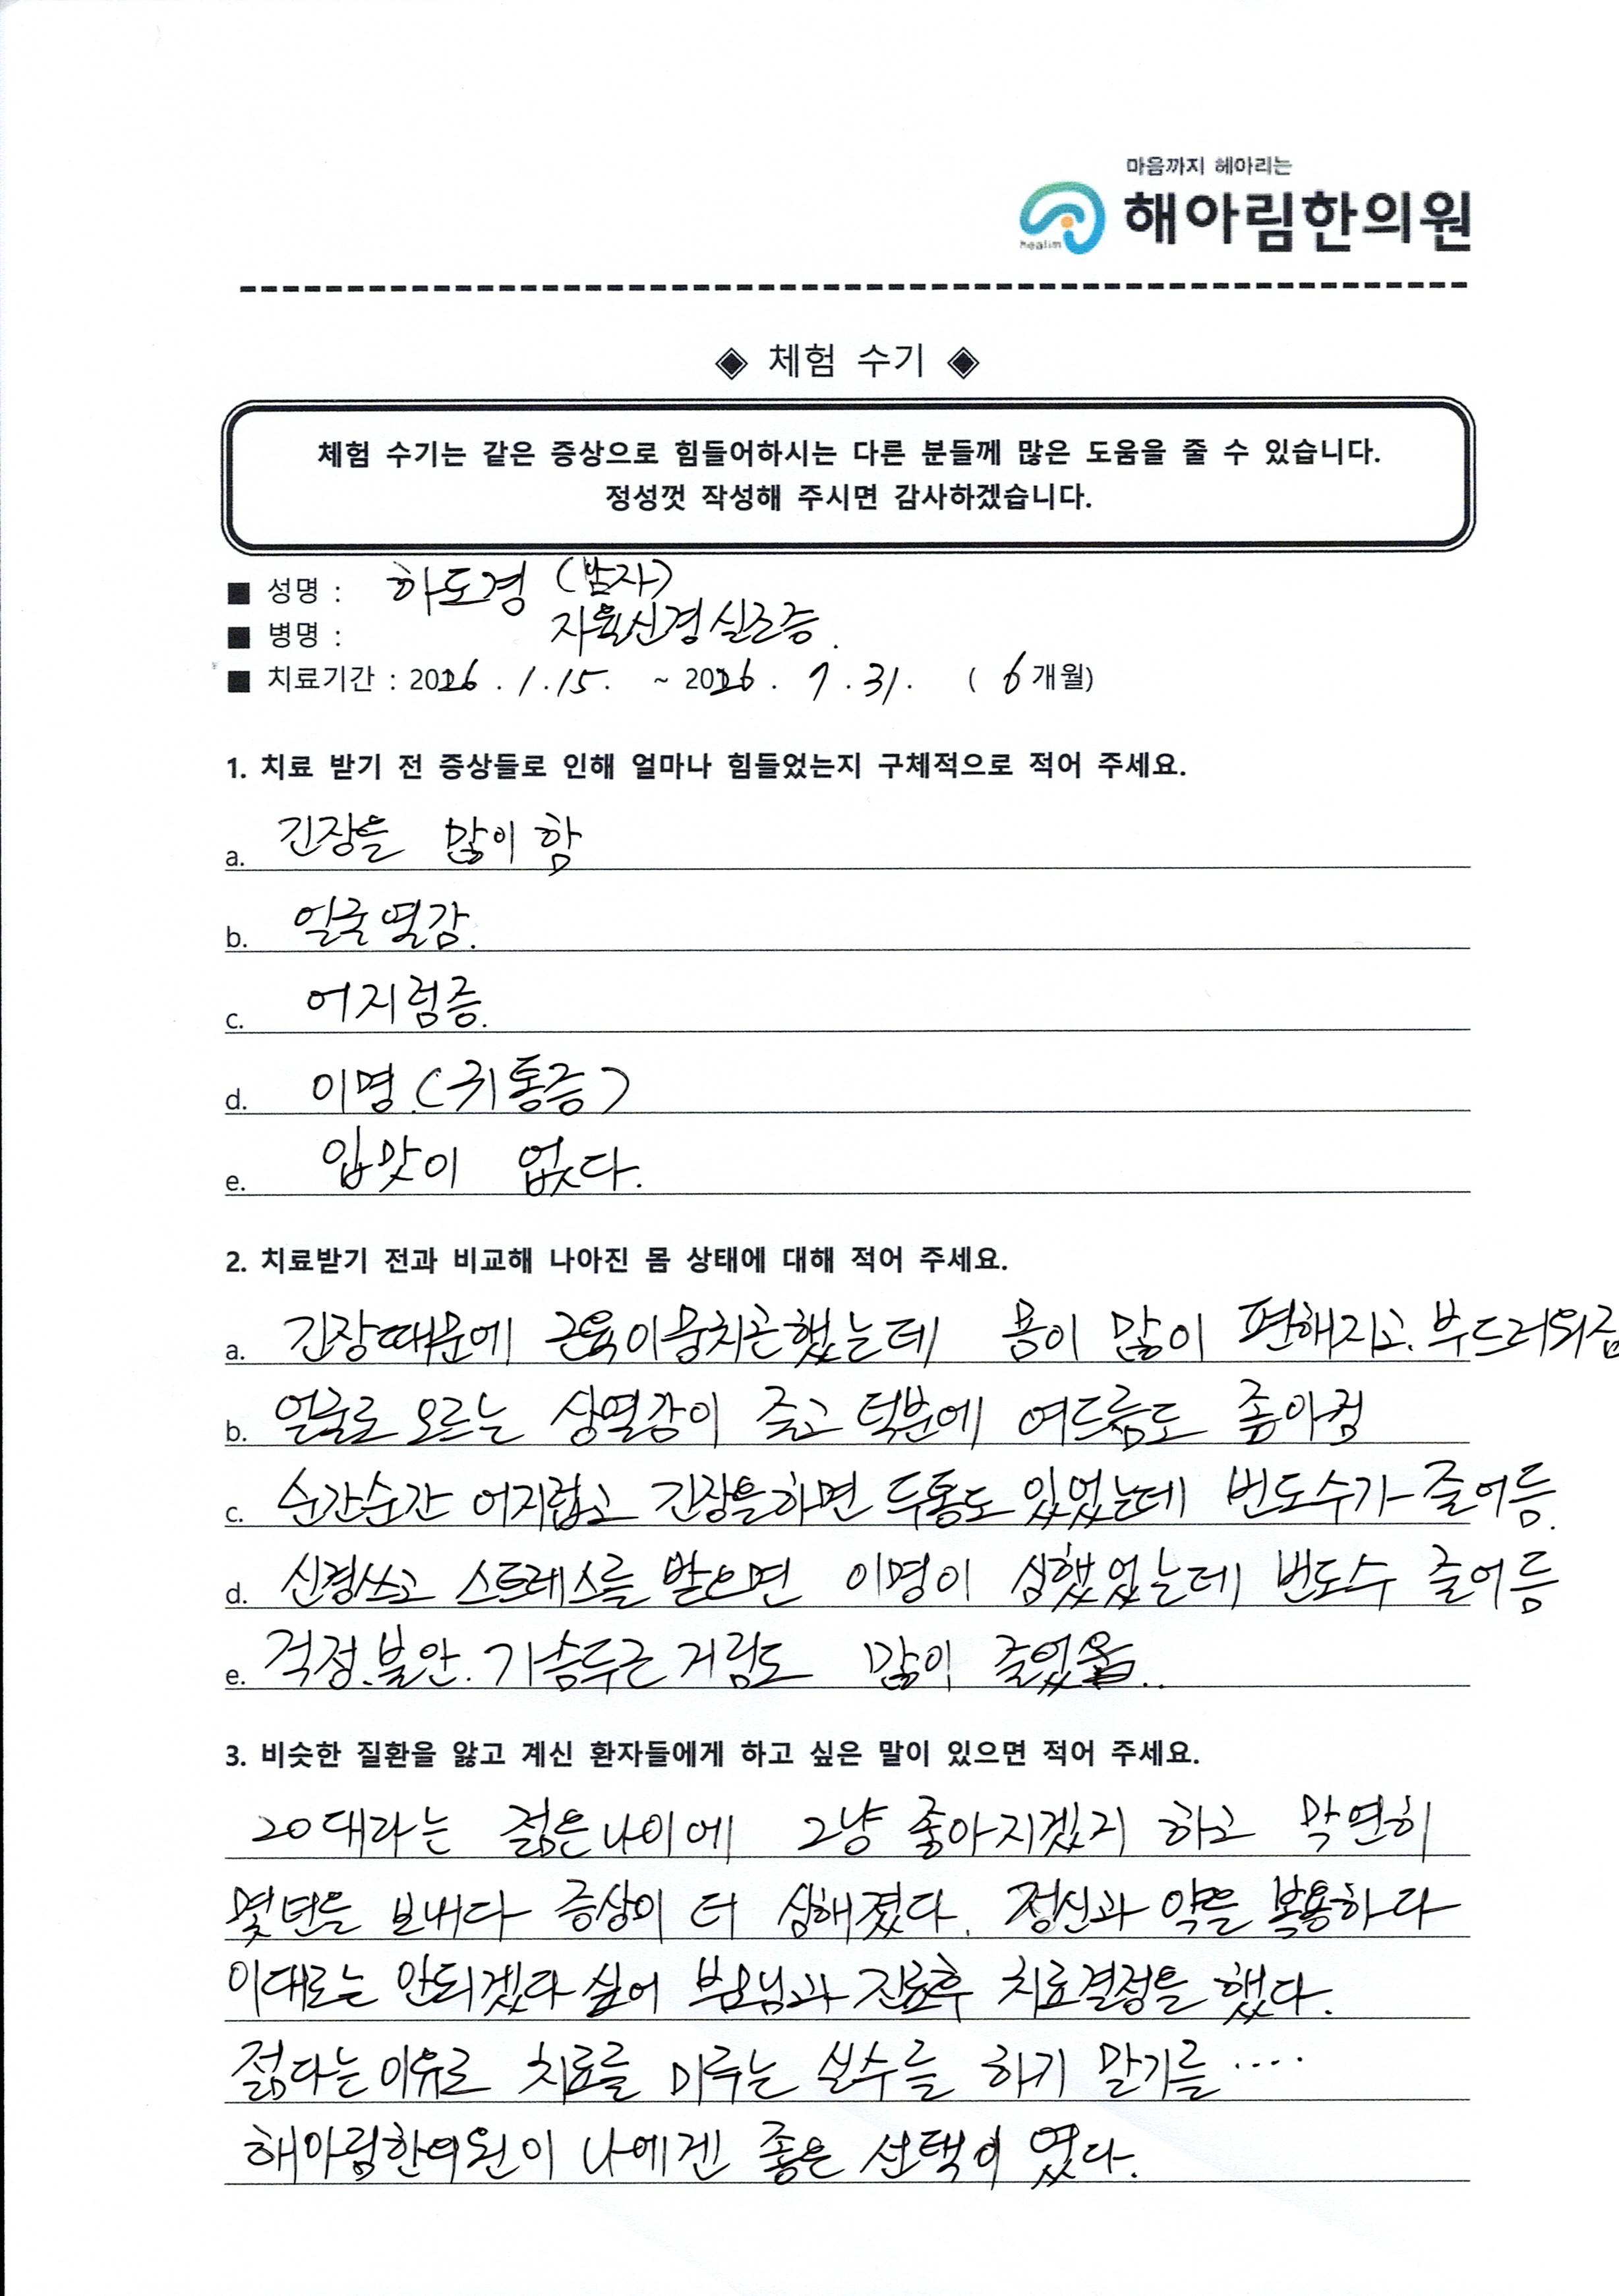 마음까지 헤아리는
healim 해아림한의원
◈ 체험 수기 ◈
체험 수기는 같은 증상으로 힘들어하시는 다른 분들께 많은 도움을 줄 수 있습니다.
정성껏 작성해 주시면 감사하겠습니다.
■ 성명 : 하도경 (남자)
■ 병명 : 자율신경실조증.
■ 치료기간 : 2026 . 1 . 15. ~ 2026 . 7 . 31. ( 6 개월)
1. 치료 받기 전 증상들로 인해 얼마나 힘들었는지 구체적으로 적어 주세요.
a. 긴장을 많이 함
b. 얼굴열감.
c. 어지럼증.
d. 이명 (귀통증)
e. 입맛이 없다.
2. 치료받기 전과 비교해 나아진 몸 상태에 대해 적어 주세요.
a. 긴장때문에 근육이뭉치곤했는데 몸이 많이 편해지고. 부드러워짐
b. 얼굴로 오르는 상열감이 줄고 덕분에 여드름도 좋아짐
c. 순간순간 어지럽고 긴장을하면 두통도 있었는데 빈도수가 줄어듬.
d. 신경쓰고 스트레스를 받으면 이명이 심했었는데 빈도수 줄어듬
e. 걱정.불안. 가슴두근거림도 많이 줄었음..
3. 비슷한 질환을 앓고 계신 환자들에게 하고 싶은 말이 있으면 적어 주세요.
20대라는 젊은나이에 그냥 좋아지겠지 하고 막연히
몇년을 보내다 증상이 더 심해졌다. 정신과 약을 복용하다
이대로는 안되겠다 싶어 부모님과 진료후 치료결정을 했다.
젊다는이유로 치료를 미루는 실수를 하기 말기를 ....
해아림한의원이 나에겐 좋은 선택이 였다.